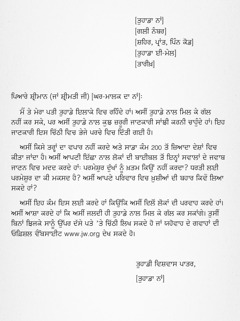 [ਤੁਹਾਡਾ ਨਾਂ]
[ਗਲੀ ਨੰਬਰ]
[ਸ਼ਹਿਰ, ਪ੍ਰਾਂਤ, ਪਿੰਨ ਕੋਡ]
[ਤੁਹਾਡਾ ਈ-ਮੇਲ]
[ਤਾਰੀਖ਼]
ਪਿਆਰੇ ਸ਼੍ਰੀਮਾਨ (ਜਾਂ ਸ਼੍ਰੀਮਤੀ ਜੀ) [ਘਰ-ਮਾਲਕ ਦਾ ਨਾਂ]:
ਮੈਂ ਤੇ ਮੇਰਾ ਪਤੀ ਤੁਹਾਡੇ ਇਲਾਕੇ ਵਿਚ ਰਹਿੰਦੇ ਹਾਂ। ਅਸੀਂ ਤੁਹਾਡੇ ਨਾਲ ਮਿਲ ਕੇ ਗੱਲ
ਨਹੀਂ ਕਰ ਸਕੇ, ਪਰ ਅਸੀਂ ਤੁਹਾਡੇ ਨਾਲ ਕੁਝ ਜ਼ਰੂਰੀ ਜਾਣਕਾਰੀ ਸਾਂਝੀ ਕਰਨੀ ਚਾਹੁੰਦੇ ਹਾਂ। ਇਹ
ਜਾਣਕਾਰੀ ਇਸ ਚਿੱਠੀ ਵਿਚ ਭੇਜੇ ਪਰਚੇ ਵਿਚ ਦਿੱਤੀ ਗਈ ਹੈ।
ਅਸੀਂ ਕਿਸੇ ਤਰ੍ਹਾਂ ਦਾ ਵਪਾਰ ਨਹੀਂ ਕਰਦੇ ਅਤੇ ਸਾਡਾ ਕੰਮ 200 ਤੋਂ ਜ਼ਿਆਦਾ ਦੇਸ਼ਾਂ ਵਿਚ
ਕੀਤਾ ਜਾਂਦਾ ਹੈ। ਅਸੀਂ ਆਪਣੀ ਇੱਛਾ ਨਾਲ ਲੋਕਾਂ ਦੀ ਬਾਈਬਲ ਤੋਂ ਇਨ੍ਹਾਂ ਸਵਾਲਾਂ ਦੇ ਜਵਾਬ
ਜਾਣਨ ਵਿਚ ਮਦਦ ਕਰਦੇ ਹਾਂ: ਪਰਮੇਸ਼ੁਰ ਦੁੱਖਾਂ ਨੂੰ ਖ਼ਤਮ ਕਿਉਂ ਨਹੀਂ ਕਰਦਾ? ਧਰਤੀ ਲਈ
ਪਰਮੇਸ਼ੁਰ ਦਾ ਕੀ ਮਕਸਦ ਹੈ? ਅਸੀਂ ਆਪਣੇ ਪਰਿਵਾਰ ਵਿਚ ਖ਼ੁਸ਼ੀਆਂ ਦੀ ਬਹਾਰ ਕਿਵੇਂ ਲਿਆ
ਸਕਦੇ ਹਾਂ?
ਅਸੀਂ ਇਹ ਕੰਮ ਇਸ ਲਈ ਕਰਦੇ ਹਾਂ ਕਿਉਂਕਿ ਅਸੀਂ ਦਿਲੋਂ ਲੋਕਾਂ ਦੀ ਪਰਵਾਹ ਕਰਦੇ ਹਾਂ।
ਅਸੀਂ ਆਸ਼ਾ ਕਰਦੇ ਹਾਂ ਕਿ ਅਸੀਂ ਜਲਦੀ ਹੀ ਤੁਹਾਡੇ ਨਾਲ ਮਿਲ ਕੇ ਗੱਲ ਕਰ ਸਕਾਂਗੇ। ਤੁਸੀਂ
ਬਿਨਾਂ ਝਿਜਕੇ ਸਾਨੂੰ ਉੱਪਰ ਦੱਸੇ ਪਤੇ 'ਤੇ ਚਿੱਠੀ ਲਿਖ ਸਕਦੇ ਹੋ ਜਾਂ ਯਹੋਵਾਹ ਦੇ ਗਵਾਹਾਂ ਦੀ
ਓਫ਼ਿਸ਼ਲ ਵੈੱਬਸਾਈਟ www.jw.org ਦੇਖ ਸਕਦੇ ਹੋ।
ਤੁਹਾਡੀ ਵਿਸ਼ਵਾਸ ਪਾਤਰ,
[ਤੁਹਾਡਾ ਨਾਂ]